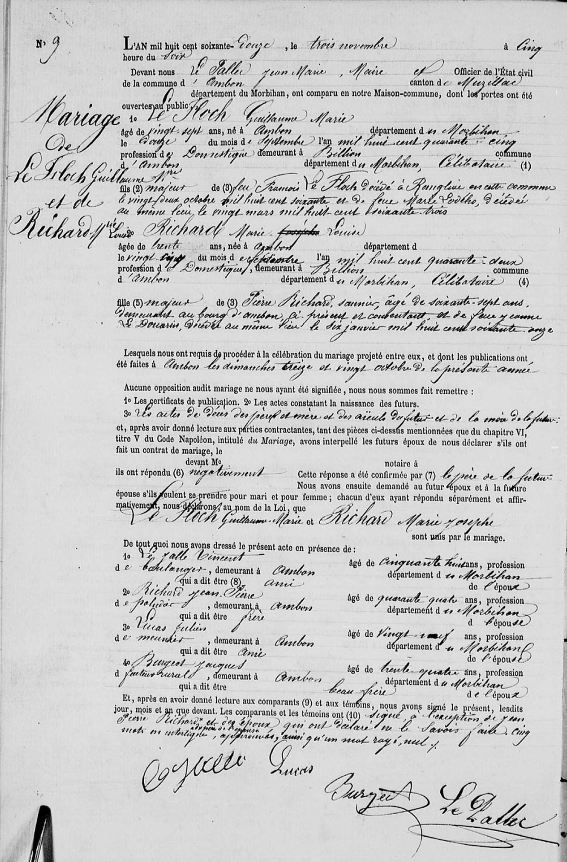 N° 9
Mariage
De
Le Floch Guillaume Mie
et de
Richard Mie Louise
L'AN mil huit cent soixante-douze, le trois novembre à cinq
heure du soir
Devant nous Le Paller Jean Marie, Maire et Officier de l'État civil
de la commune d'Ambon canton de Muzillac
département du Morbihan, ont comparu en notre Maison-commune, dont les portes ont été
ouvertes au public
1° Le Floch Guillaume Marie
âgé de vingt sept ans, né à Ambon département du Morbihan
le douze du mois de Septembre l'an mil huit cent quarante-cinq
profession de Domestique demeurant à Billion commune
d'Ambon du Morbihan, Célibataire (1)
fils (2) majeur de (3) feu François Le Floch décédé à en cette commune
le vingt deux octobre mil huit cent soixante et de feue Marie décédée
au même lieu, le vingt mars mil huit cent soixante trois
2° Richard Marie Joseph Louise
âgée de trente ans, née à Ambon département d
le vingt du mois de Septembre l'an mil huit cent quarante-deux
profession de Domestique, demeurant à Billion commune
d'Ambon du Morbihan, Célibataire (4)
fille (5) majeur de (3) Pierre Richard, saunier, âgé de soixante sept ans,
demeurant au bourg d'ambon, à présent et consentant, et de feue Jeanne
Le Douarin, décédée au même lieu le six janvier mil huit cent soixante onze
Lesquels nous ont requis de procéder à la célébration du mariage projeté entre eux, et dont les publications ont
été faites à Ambon les dimanches treize et vingt octobre de la présente année
Aucune opposition audit mariage ne nous ayant été signifiée, nous nous sommes fait remettre :
1° Les certificats de publication. 2° Les actes constatant la naissance des futurs.
3° Les actes de décès des père et mère et des aïeuls du futur et de la mère de la future
et, après avoir donné lecture aux parties contractantes, tant des pièces ci-dessus mentionnées que du chapitre VI,
titre V du Code Napoléon, intitulé du Mariage, avons interpellé les futurs époux de nous déclarer s'ils ont
fait un contrat de mariage.
devant Me notaire à
ils ont répondu (6) négativement Cette réponse a été confirmée par (7) le père de la future
Nous avons ensuite demandé au futur époux et à la future
épouse s'ils veulent se prendre pour mari et pour femme ; chacun d'eux ayant répondu séparément et affir-
mativement, nous déclarons, au nom de la Loi, que
Le Floch Guillaume-Marie et Richard Marie Josephe
sont unis par le mariage.
De tout quoi nous avons dressé le présent acte en présence de :
1° Le Galle Vincent âgé de cinquante huit ans, profession
de boulanger, demeurant à Ambon département du Morbihan
qui a dit être (8) ami de l'époux
2° Richard Jean Pierre âgé de quarante quatre ans, profession
de , demeurant à Ambon département du Morbihan
qui a dit être frère de l'épouse
3° Lucas Julien âgé de vingt neuf ans, profession
de meunier, demeurant à Ambon département du Morbihan
qui a dit être ami de l'épouse
4° Burgeot Jacques âgé de trente-quatre ans, profession
de facteur rural, demeurant à Ambon département du Morbihan
qui a dit être beau frère de l'époux
Et, après avoir donné lecture aux comparants (9) et aux témoins, nous avons signé le présent, lesdits
jour, mois et an que devant. Les comparants et les témoins ont (10) signé à l'exception de Jean
Pierre Richard et des époux qui ont déclaré ne le savoir faire cinq
mots en interligne, approuvés, ainsi qu'un mot rayé, nul.
Lucas
Burgeot
Le Paller